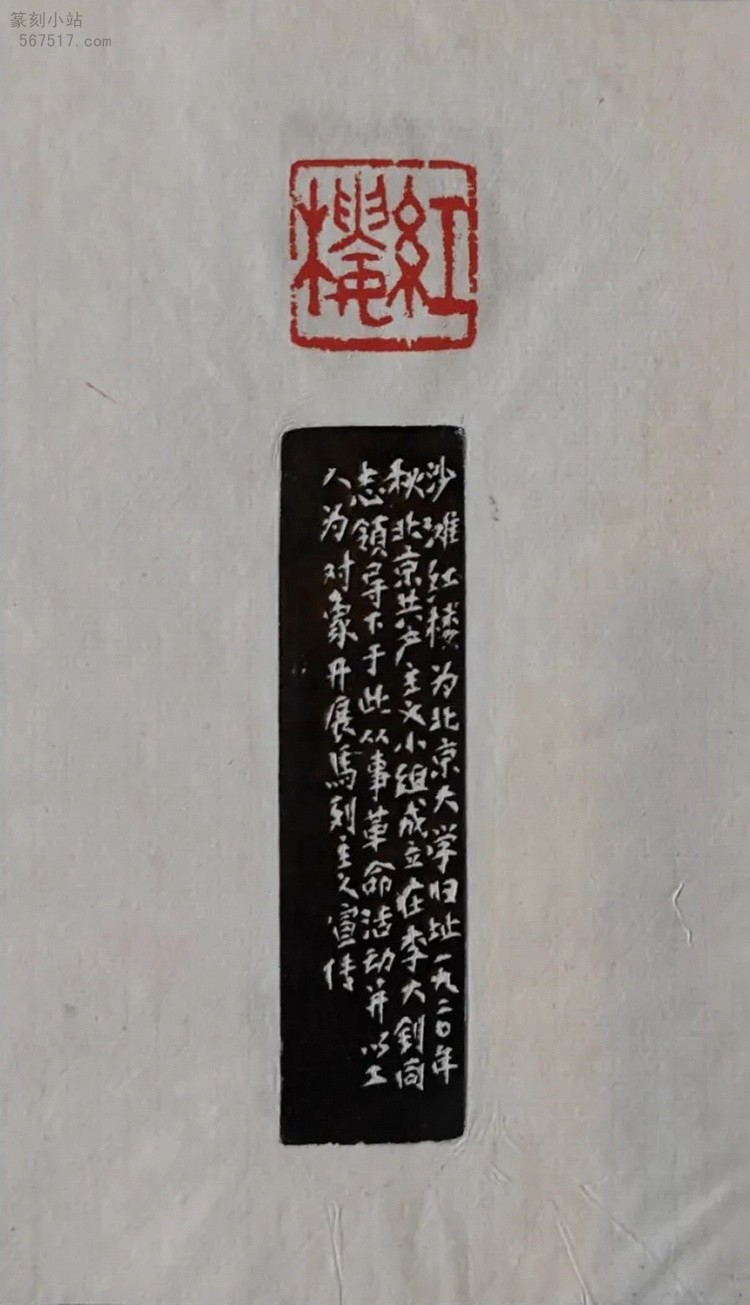 篆刻小站
567517.com
紅樓
沙滩红楼为北京大学旧址一九二〇年
秋北京共产主义小组成立在李大钊同
志领导下于此从事革命活动并以工
人为对象开展馬列主义宣传